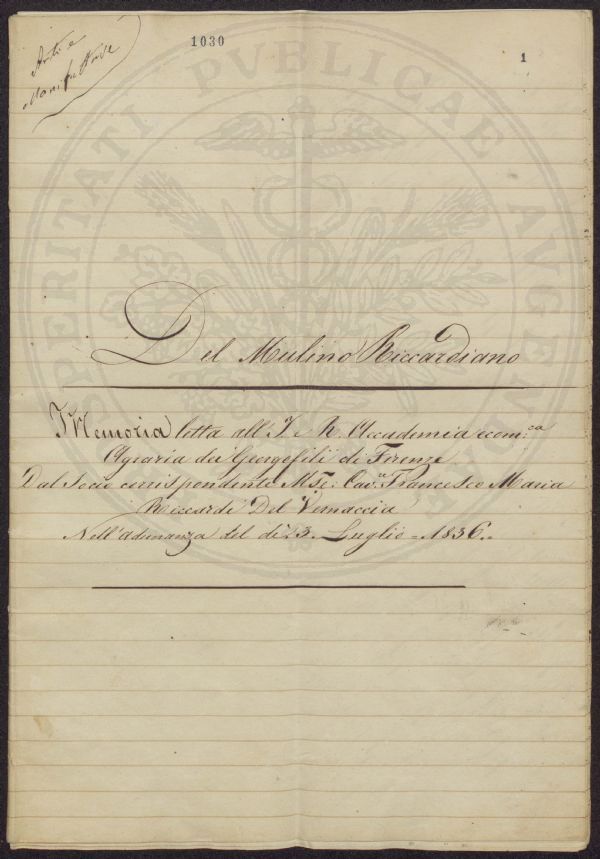 Arti e
Manifatture
1030
1
PROSPERITATI PUBLICAE AUGENDAE
Del Mulino Riccardiano
Memoria letta all' I. e R. Accademia econ:ca
Agraria dei Georgofili di Firenze
Dal Socio corrispondente Mse: Cav:e Francesco Maria
Riccardi Del Vernaccia
Nell'adunanza del dì 3. Luglio = 1836.=